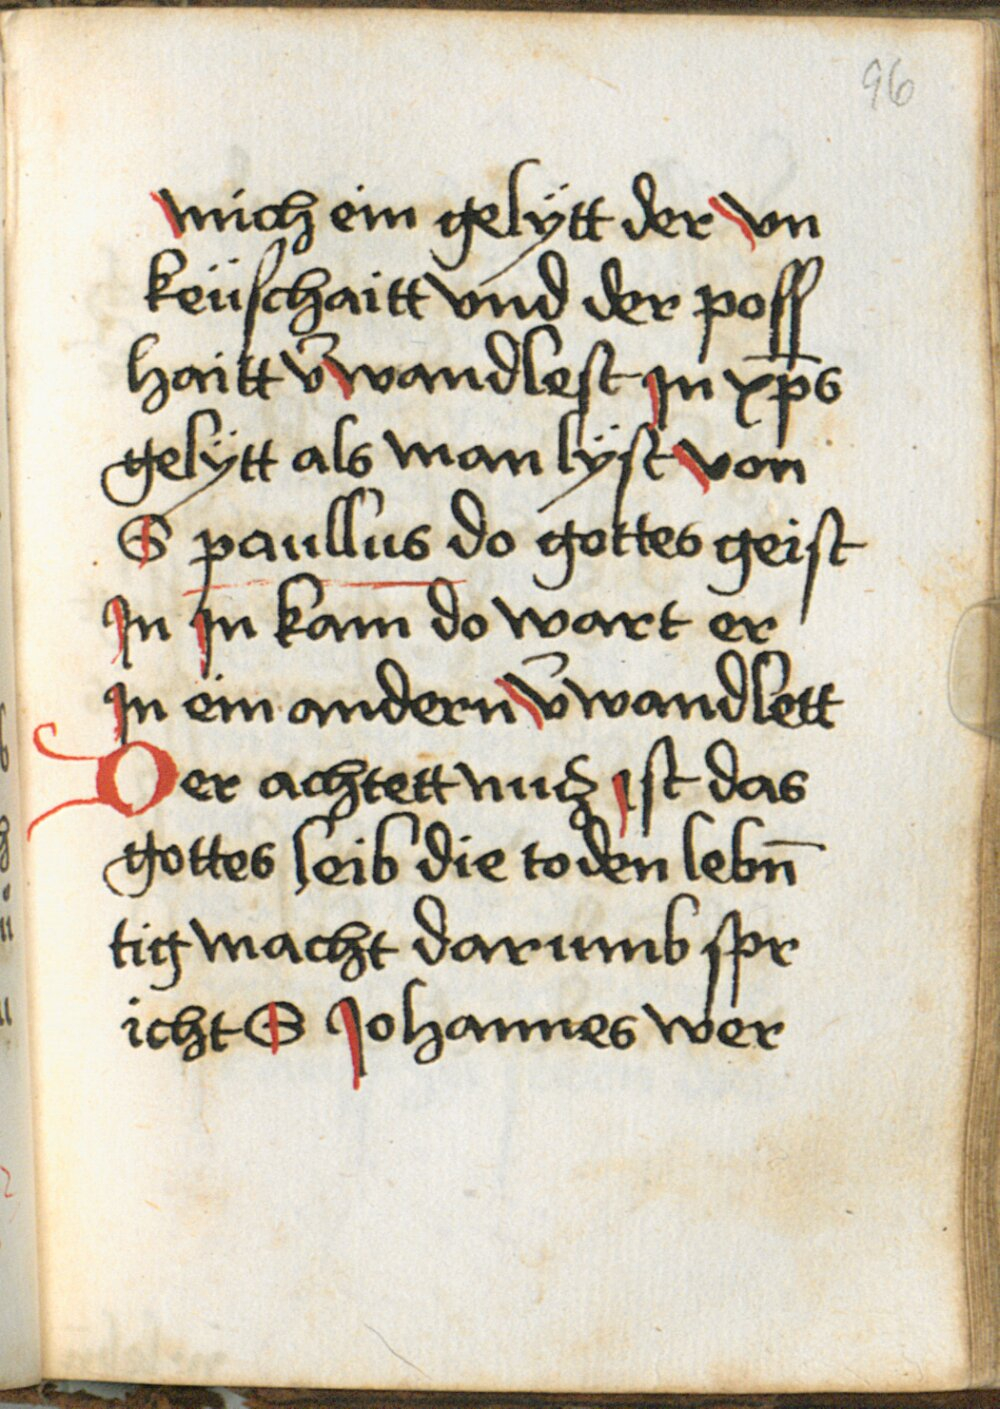 96
mich ein gelÿtt der vn
keüschaitt vnd der poss
haitt v̄wandlest in xp̄s
gelÿtt als man lÿst von
S paullus do gottes geist
In in kam do wart er
In ein andern v̄wandlett
Der achtett mich ist das
gottes leib die toden lebn̄
tig macht darumb spr
icht S Johannes wer